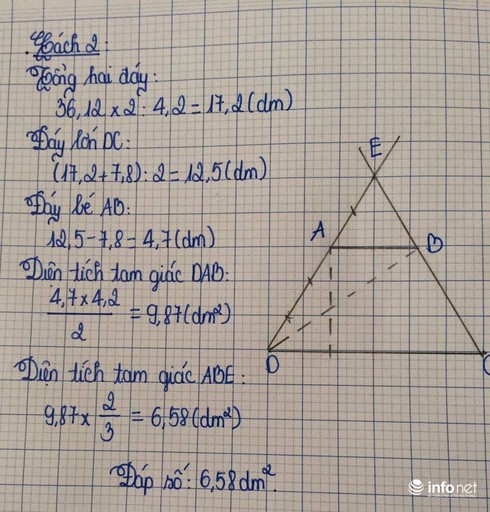 . Cách 2:
Tổng hai đáy:
36,12 x 2 : 4,2 = 17,2 (dm)
Đáy lớn DC:
(17,2 + 7,8) : 2 = 12,5 (dm)
Đáy bé AB:
12,5 - 7,8 = 4,7 (dm)
Diện tích tam giác DAB:
4,7 x 4,2
= 9,87 (dm²)
2
Diện tích tam giác ABE:
9,87 x 2/3 = 6,58 (dm²)
Đáp số: 6,58 dm².
E
A
B
D
C
infonet